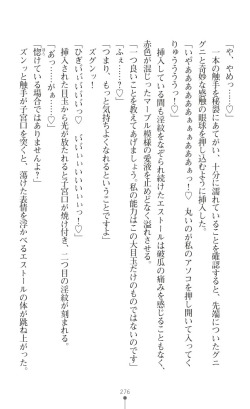 「や、やめっ……♡」
　一本の触手を秘裂にあてがい、十分に濡れていることを確認すると、先端についたグニ
グニと奇妙な感触の眼球を押し込むように挿入した。
「いやぁああああぁぁぁああああぁぁっ！♡　丸いのが私のアソコを押し開いて入ってく
りゅううううっ！♡」
　挿入している間にも淫紋をなぞられ続けたエストールは破瓜の痛みを感じることもなく、
赤色が混じったマーブル模様の愛液を止めどなく溢れさせる。
「一つ良いことを教えてあげましょう。私の能力はこの大目玉だけのものではないのです」
「ふぇ……？♡」
「つまり、もっと気持ちよくなれるということですよ」
　ズグンッ！
「ひぎぃいいいいっ！♡　いいいぃいいいぃぃっ！♡」
　挿入された目玉から光が放たれると子宮口が焼け付き、二つ目の淫紋が刻まれる。
「あっ……がぁ……♡」
「惚けている場合ではありませんよ？」
　ズンッと触手が子宮口を突くと、蕩けた表情を浮かべるエストールの体が跳ね上がった。
276